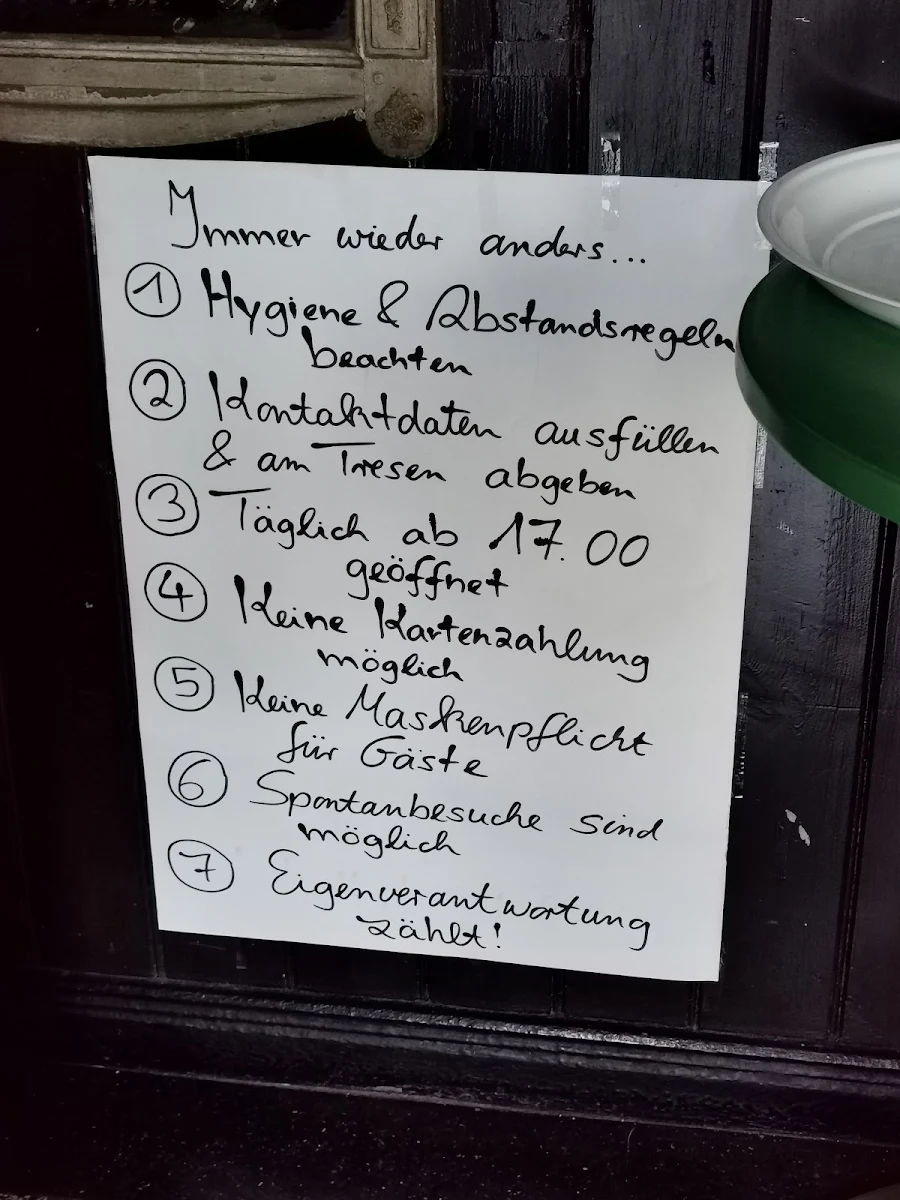 Immer wieder anders...
1 Hygiene & Abstandsregeln
beachten
2 Kontaktdaten ausfüllen
& am Tresen abgeben
3 Täglich ab 17.00
geöffnet
4 Keine Kartenzahlung
möglich
5 Keine Maskenpflicht
für Gäste
6 Spontanbesuche sind
möglich
7 Eigenverantwortung
zählt!